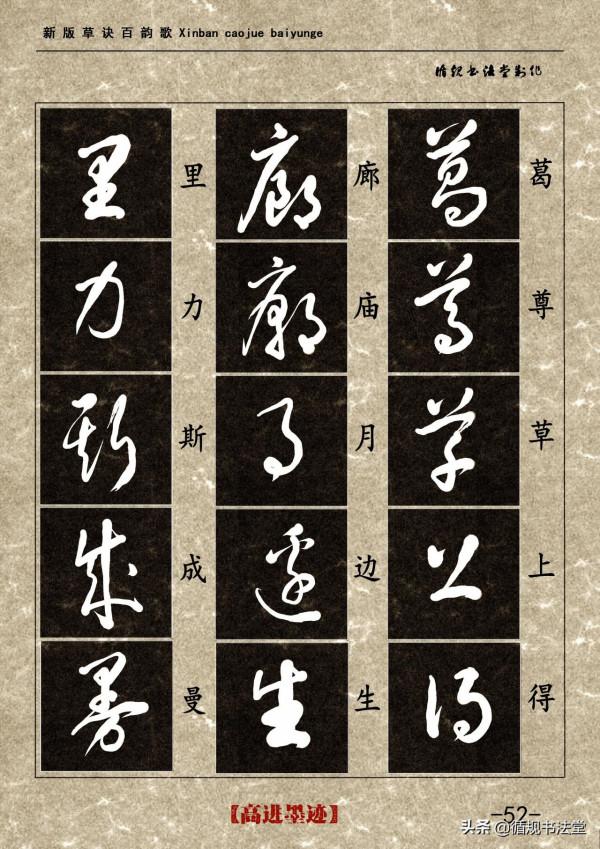 新版草诀百韵歌 Xinban caojue baiyunge
循规书法堂制作
葛尊草上得
廊庙月边生
里力斯成曼
【高进墨迹】
-52-
头条 @循规书法堂